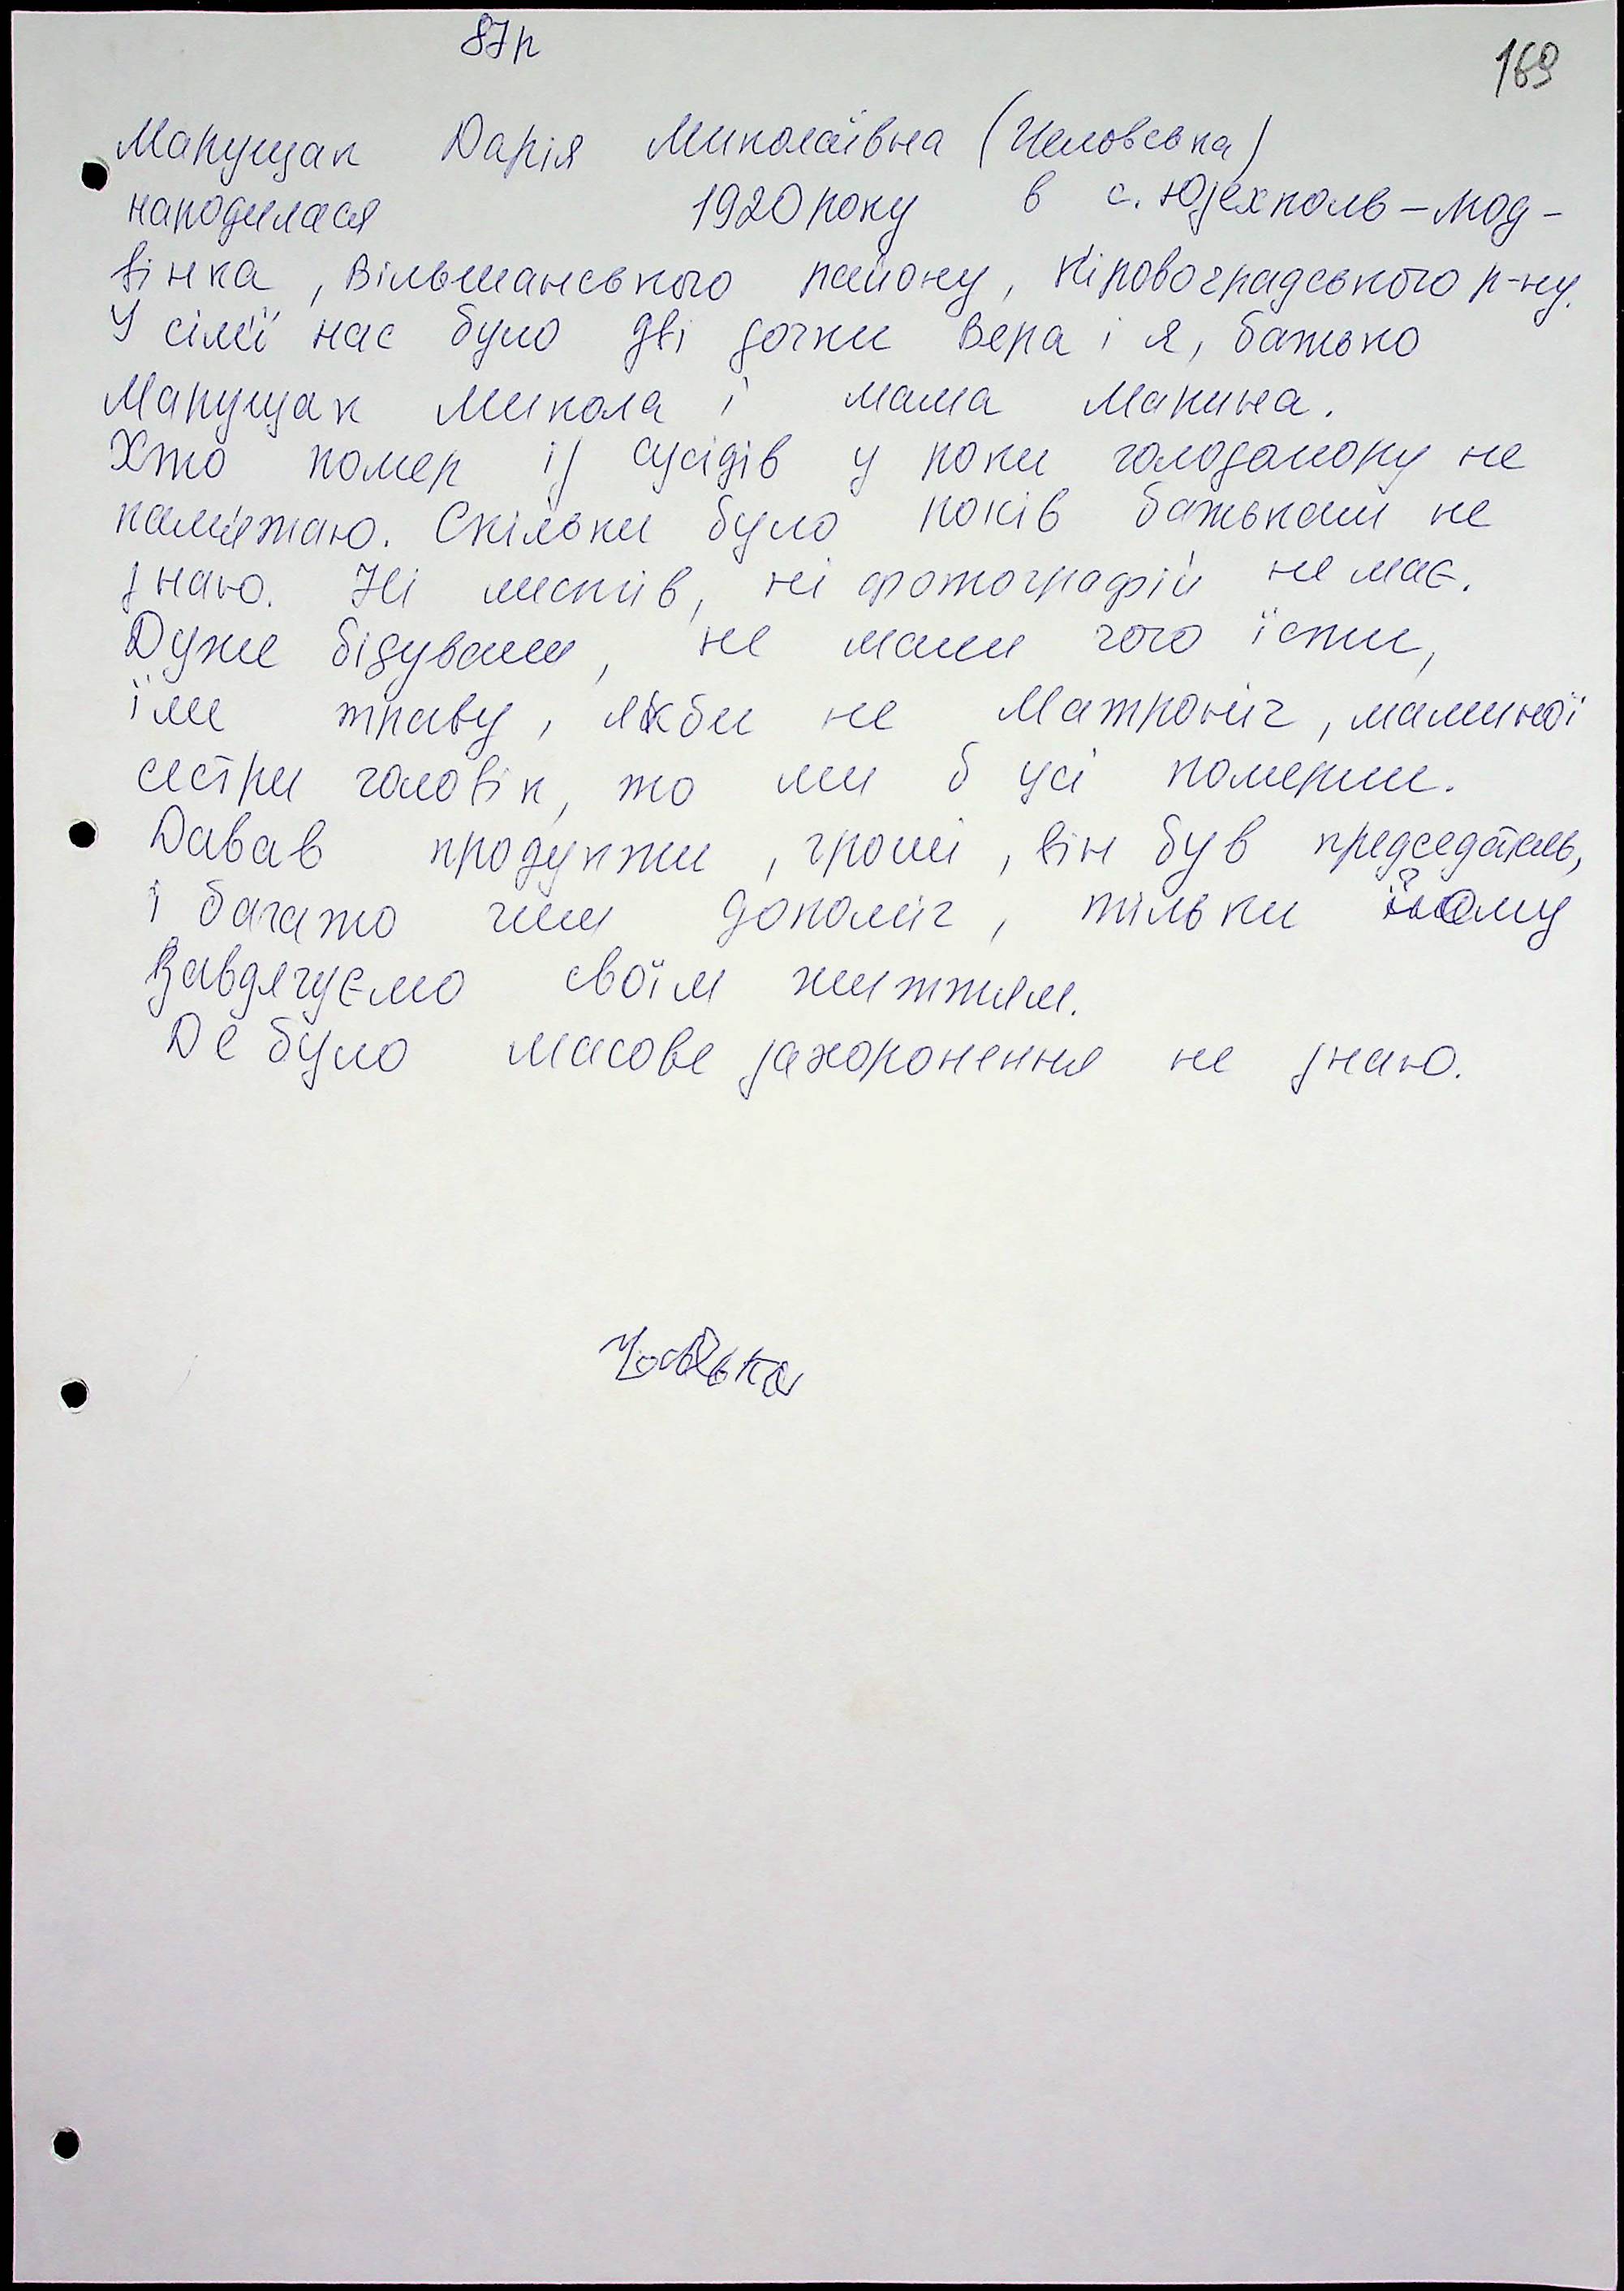 87р
169
Марущак Дарія Миколаївна (Человська)
народилася 1920 року в с. Юзехполь-мод-
вінка, Вільшанського району, Кіровоградського р-ну.
У сім'ї нас було дві дочки Вера і я, батько
Марущак Микола і мама Марина.
Хто помер із сусідів у роки голодомору не
пам'ятаю. Скільки було років батькам не
знаю. Ні листів, ні фотографій не має.
Дуже бідували, не мали чого їсти,
їли траву, якби не Матроніч, маминої
сестри головік, то ми б усі померли.
Давав продукти, гроші, він був председатель,
і багато чим допоміг, тільки йому
Завдячуємо своїм життям.
Де було масове захоронення не знаю.